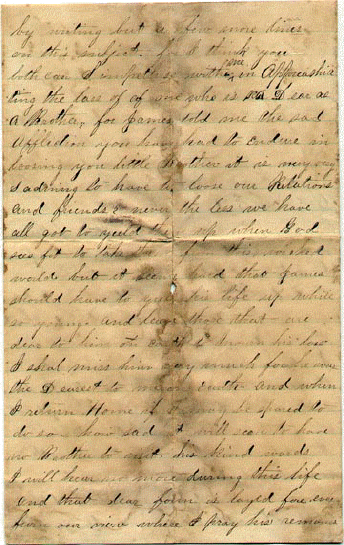 by writing but a few more lines
on this subject for I think you
both can simpathise with me in Appreciating
ting the loss of one who is as Dear as
a Brother, for James told me the sad
Affliction you have had to endure in
loosing you little Brother it is very
sadning to have to loose our Relations
and friends never the less we have
all got to yeild up when God
sees fit to take from this
world but it seems hard that James
should have to yeild his life up while
so young and leave those that are
dear to him on earth to mourn his loss
I shal miss him very much for he was
the Dearest to me on earth and when
I return Home if I may be spared to
do so how sad it will seem to have
no Brother to his kind words
I will hear no more during this life
And that dear form is layed forever
from our view where I pray his remains